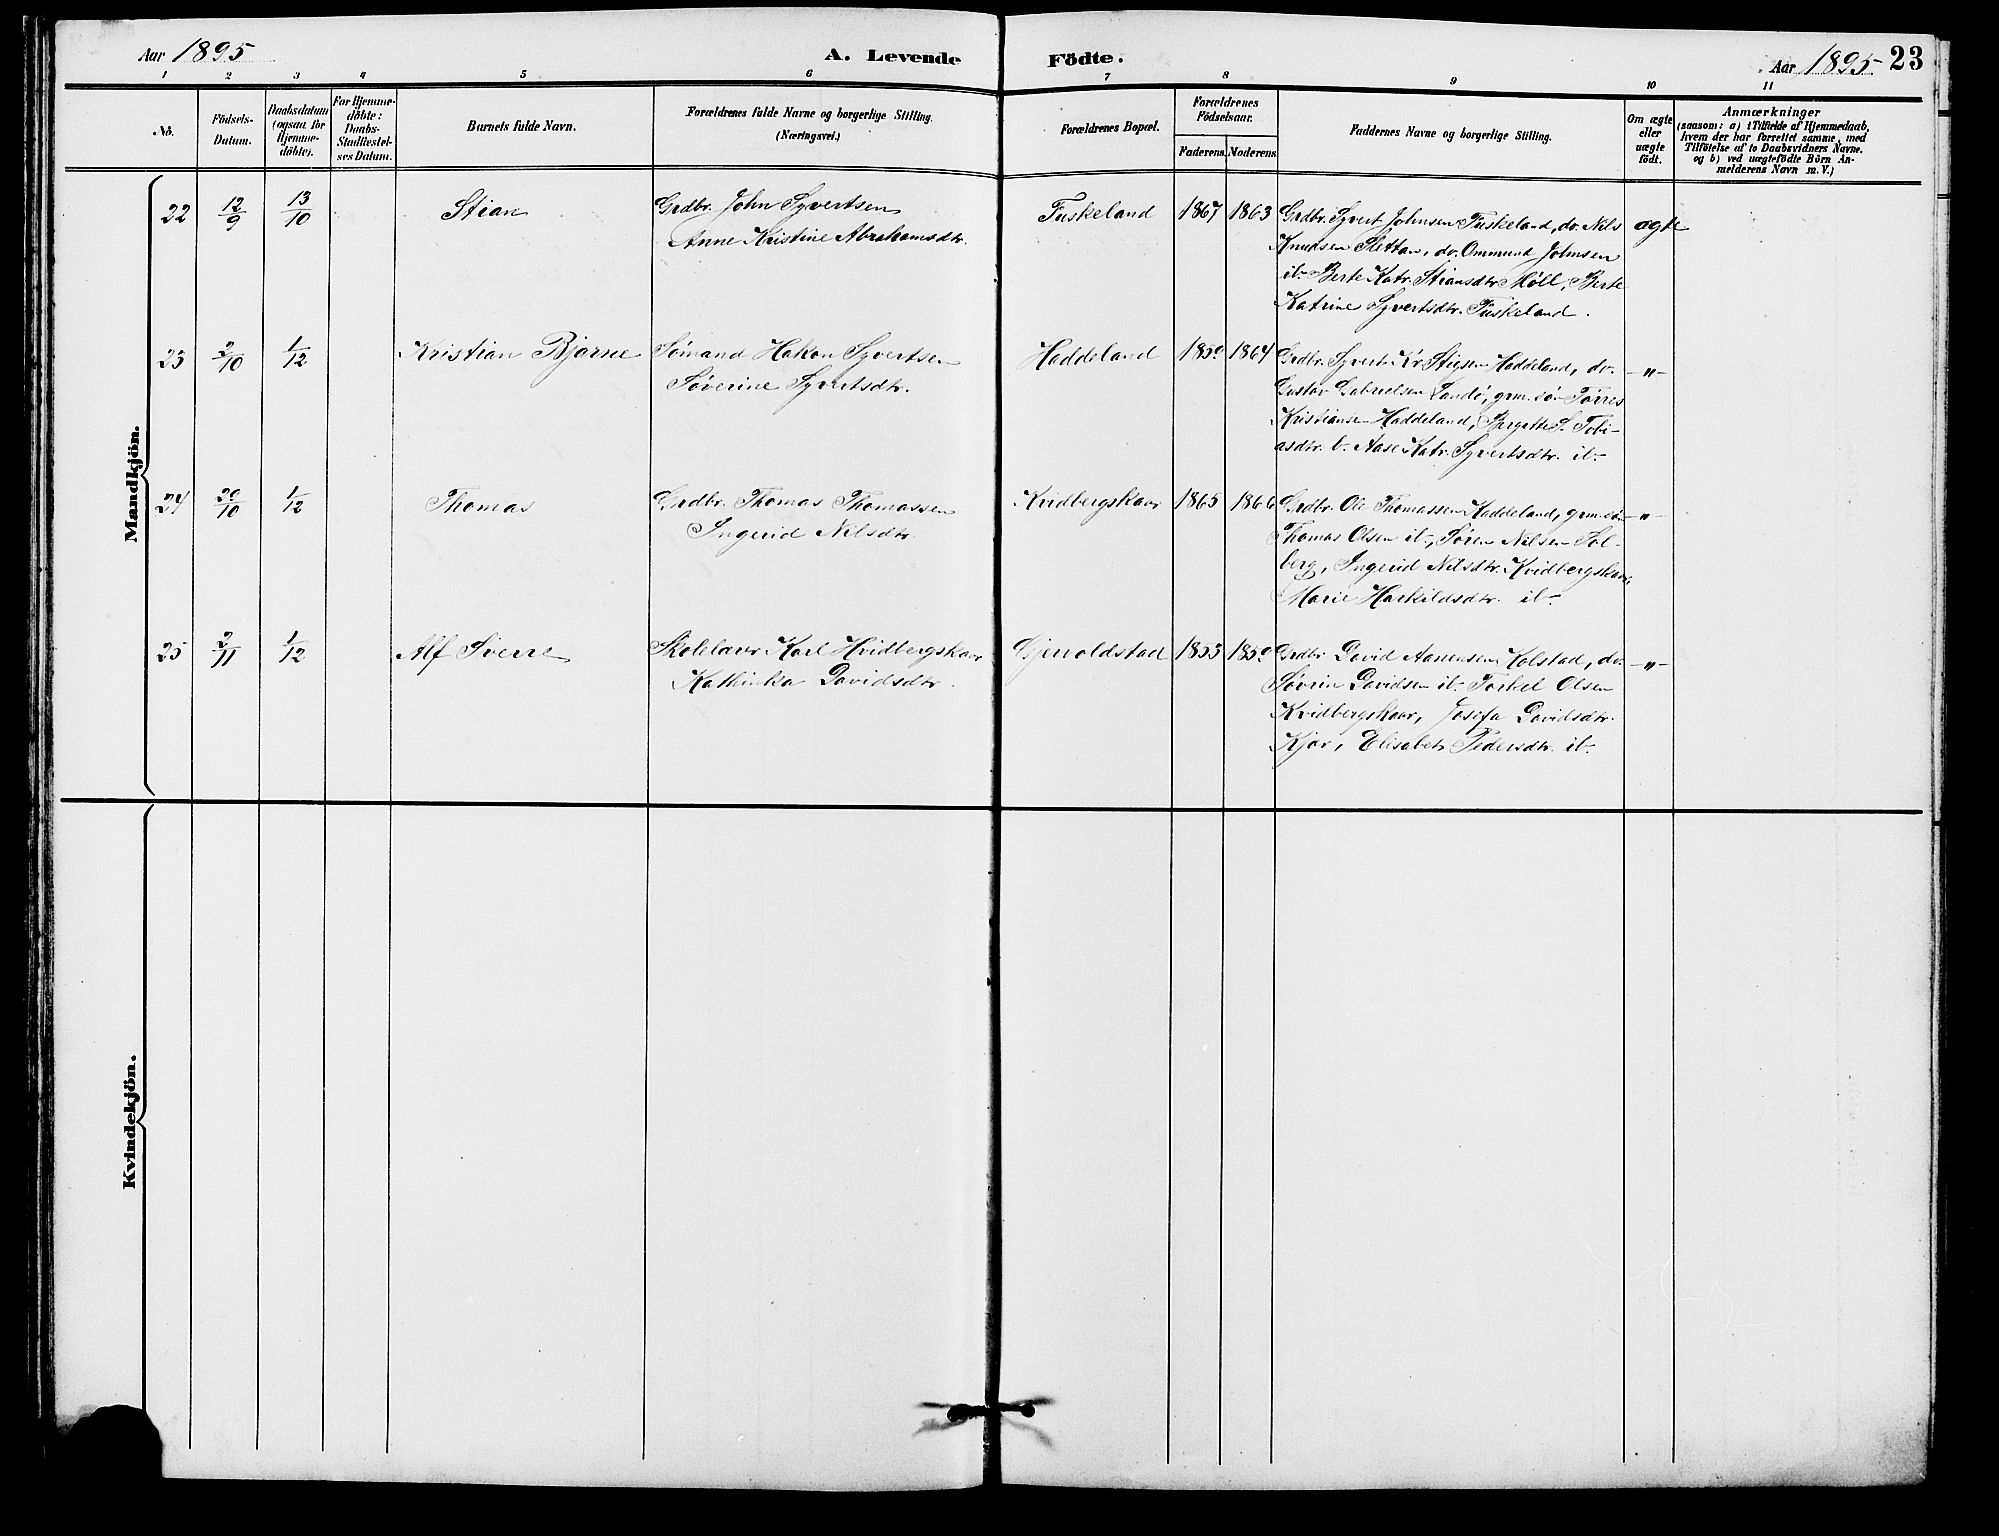 Aar 1895
A. Levende Födte.
Aar 1895 23
1 2 3 4 5 6 7 8 9 10 11
No.
Födsels-
Datum.
Daabsdatum
(ogsaa for
Hjemme-
döbte).
For Hjemme-
döbte:
Daabs-
Stadfæstel-
ses Datum.
Barnets fulde Navn.
Forældrenes fulde Navne og borgerlige Stilling.
(Næringsvei.)
Forældrenes Bopæl.
Forældrenes
Födselsaar.
Faderens. Moderens.
Faddernes Navne og borgerlige Stilling.
Om ægte
eller
uægte
födt.
Anmærkninger
(saasom: a) i Tilfælde af Hjemmedaab,
hvem der har forrettet samme, med
Tilföielse af to Daabsvidners Navne.
og b) ved uægtefödte Börn An-
melderens Navn m. V.)
Mandkjön.
22 12/9 13/10 Stian Grdbr. John Syvertsen Fuskeland 1867 1863 Grdbr. Syvert Johnsen Fuskeland, do. Nils ægte
Anne Kristine Abrahamsdtr. Knudsen Slettan, do. Ommund Johnsen
ib. Berte Katr. Stiansdtr. Möll, Berte
Katrine Syvertsdtr. Fuskeland.
23 2/10 1/12 Kristian Bjarne Sømand Hakon Syvertsen Haddeland 1859 1864 Grdbr. Syvert Kr. Stigsen Haddeland, do. -"-
Søverine Syvertsdtr. Gustav Gabrielsen Landö, grm. søn Tørres
Kristiansen Haddeland, Bergitte S. Tobi-
asdtr. b. Aase Katr. Syvertsdtr. ib.
24 20/10 1/12 Thomas Grdbr. Thomas Thomassen Kvidbergskaar 1865 1866 Grdbr. Ole Thomassen Haddeland, grm. søn -"-
Ingerid Nilsdtr. Thomas Olsen ib., Søren Nilsen Sol-
berg, Ingerid Nilsdtr. Kvidbergskaar,
Marie Harkildsdtr. ib.
25 2/11 1/12 Alf Sverre Skolelærer Karl Hvidbergskaar 1853 1859 Grdbr. David Aanensen Kolstad, do. -"-
Kathinka Davidsdtr. Søvrin Davidsen ib. Torkel Olsen
Kvidbergskaar, Josefa Davidsdtr.
Kjær, Elisabet Pedersdtr. ib.
Kvindekjön.